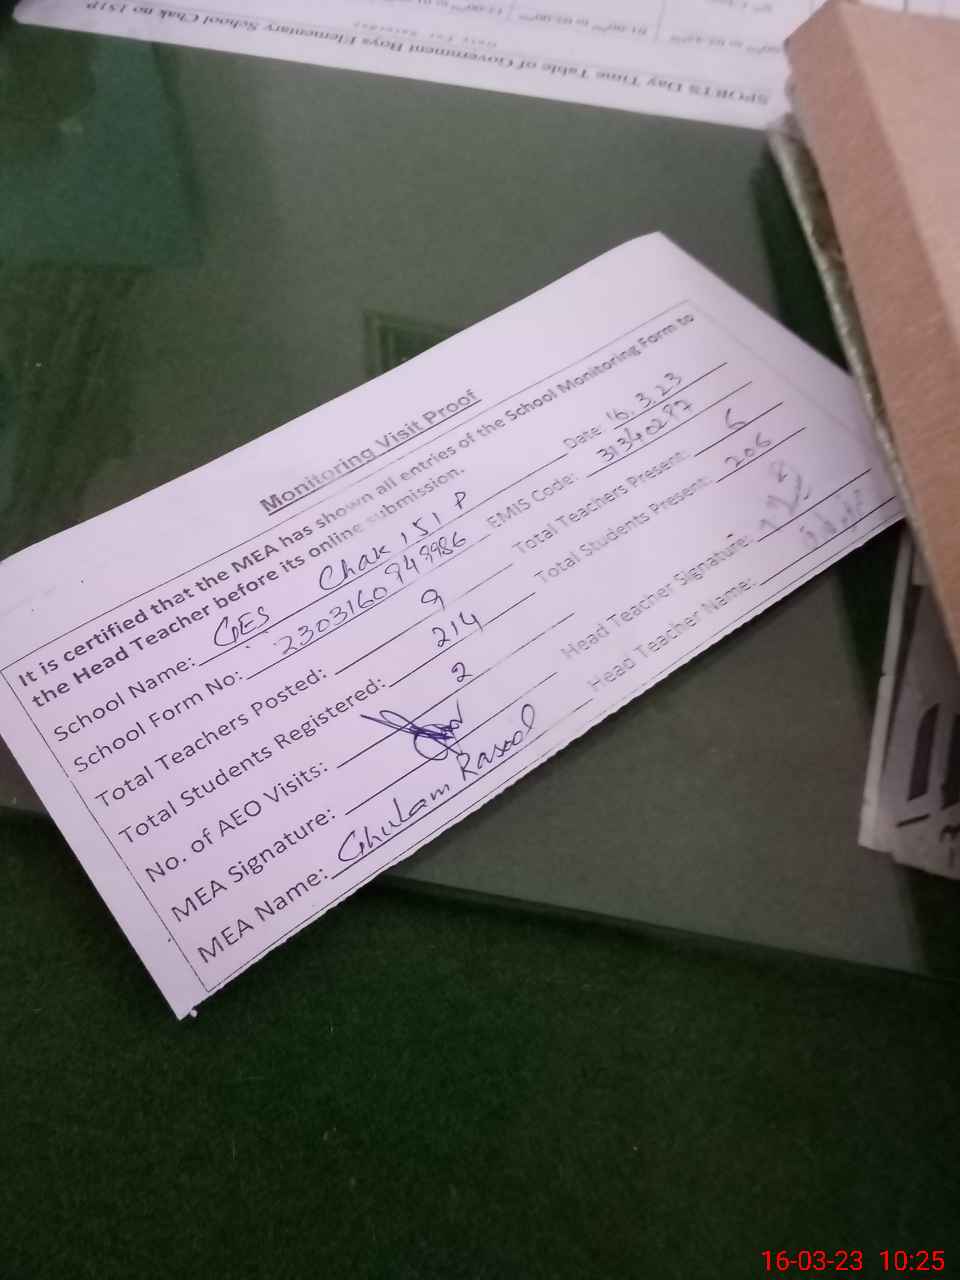 SPORTS Day Time Table of Government Boys Elementary School Chak no 151P
Monitoring Visit Proof
It is certified that the MEA has shown all entries of the School Monitoring Form to
the Head Teacher before its online submission.
School Name: GES Chak 151 P Date: 16.3.23
School Form No: 2303160948986 EMIS Code: 31340287
Total Teachers Posted: 9 Total Teachers Present: 6
Total Students Registered: 214 Total Students Present: 206
No. of AEO Visits: 2
MEA Signature: Head Teacher Signature:
MEA Name: Ghulam Rasool Head Teacher Name:
16-03-23 10:25